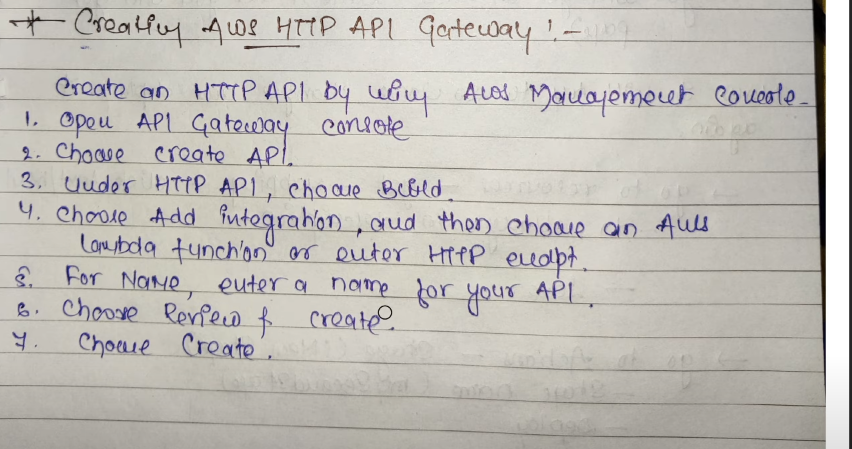 * Creating AWS HTTP API Gateway :-
Create an HTTP API by using AWS Management console-
1. Open API Gateway console
2. Choose create API.
3. Under HTTP API, choose Build.
4. Choose Add integration, and then choose an AWS
Lambda function or enter HTTP endpt.
5. For Name, enter a name for your API.
6. Choose Review & create.
7. Choose Create.